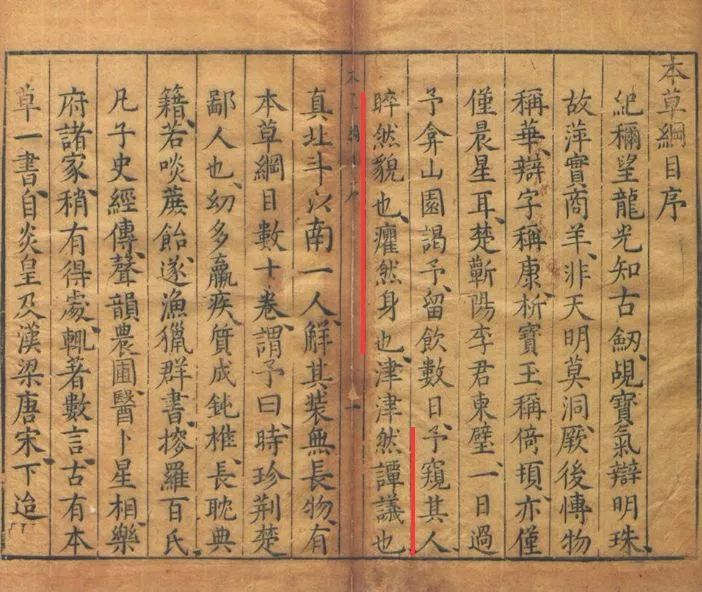 本草綱目序
紀稱望龍光知古劔覘寶氣辯明珠
故萍實商羊非天明莫洞厥後愽物
稱華辯字稱康析寳玉稱倚頓亦僅
僅晨星耳楚蘄陽李君東璧一日過
予弇山園謁予留飲數日予窺其人
睟然貌也癯然身也津津然譚議也
真北斗以南一人解其裝無長物有
本草綱目數十卷謂予曰時珍荆楚
鄙人也幼多羸疾質成鈍椎長耽典
籍若啖蔗飴遂漁獵群書搜羅百氏
凡子史經傳聲韻農圃醫卜星相樂
府諸家稍有得處輒著數言古有本
草一書自炎皇及漢梁唐宋下迨